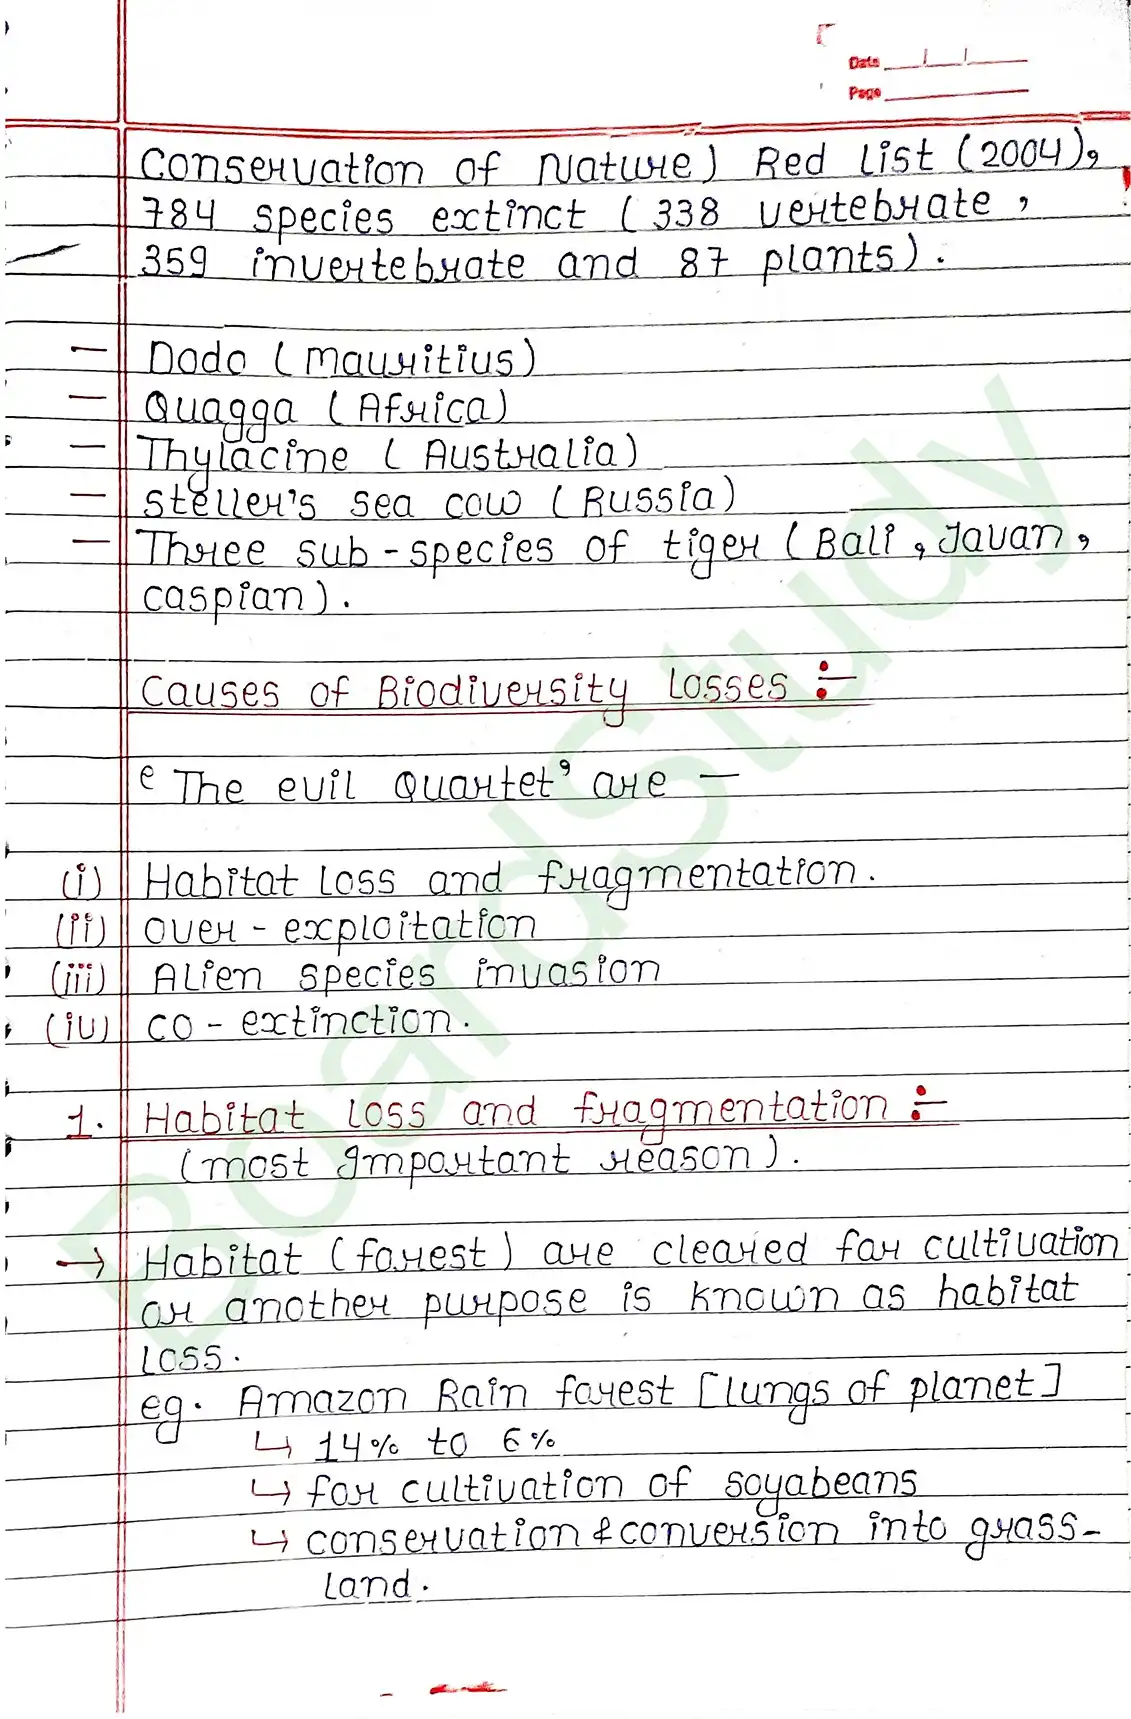 Date
Page
Conservation of Nature) Red List (2004),
784 species extinct ( 338 vertebrate ,
359 invertebrate and 87 plants) .
— Dodo ( Mauritius)
— Quagga ( Africa)
— Thylacine ( Australia)
— Steller's sea cow ( Russia)
— Three sub - species of tiger ( Bali , Javan ,
caspian ) .
Causes of Biodiversity Losses :-
‘ The evil Quartet’ are —
(i) Habitat loss and fragmentation .
(ii) over - exploitation
(iii) Alien species invasion
(iv) co - extinction .
1. Habitat loss and fragmentation :-
(most Important reason ) .
→ Habitat (forest) are cleared for cultivation
or another purpose is known as habitat
loss .
eg . Amazon Rain forest [lungs of planet]
↳ 14% to 6%
↳ for cultivation of soyabeans
↳ conservation & conversion into grass-
land .
BoardStudy